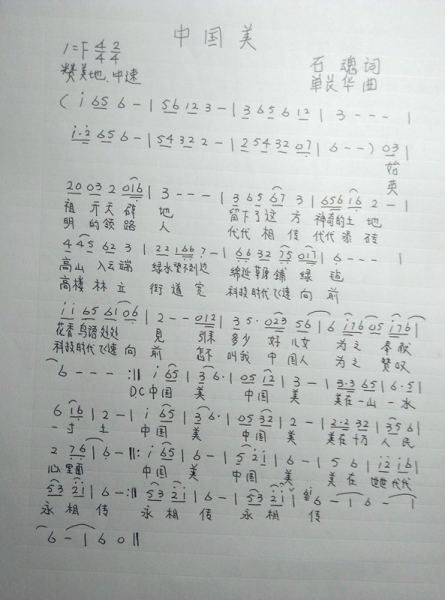 中国美
1=F 4/4 2/4
石魂词
赞美地、中速
单芪华曲
( i 65 6 - | 56 12 3 - | 3 65 6 12 | 3 - - - |
i·2 65 6 - | 54 32 2 - | 2 54 32 07 | 6 - - ) 03 |
始
英
20 03 2 016 | 3 - - - | 3 65 67 3 | 656 16 2 - |
祖 开天辟 地 留下了这方 神奇的土地
明的领路 人 代代相传
4 45 62 3 | 22 166 7 - | 66 32 75 017 | 6 - - - |
高山入云端 绵延草原铺绿毡
高楼林立 街道宽 科技时代飞速向前
i i 65 61 06 | 2 - - 012 | 3 5· 023 56 | 6 i76 05 i76 |
花香鸟语 见 多少好儿女 为之奉献
科技时代飞速向前 叫我中国人 为之赞叹
6 - - - :|| i 65 | 36· | 05 12 | 3 - | 3·3 65 | 6·5 |
D.C 中国美 中国美 美在一山一水
6 16 | 2 - | i 65 | 36· | 05 32 | 2 - | 2·2 32 | 356 |
一寸土 中国美 中国美 美在千万人民
2 76 | 6 - ||: i 65 | 6 - | 5 21 | 6 - | 5 6 | 12 16 |
心里面 中国美 中国美 美在 代代
53 21 | 6 - :|| 53 21 | 6 - | 53 21 | 6 - | 6 - |
永相传 永相传 永相传
6 - | 6 0 ||